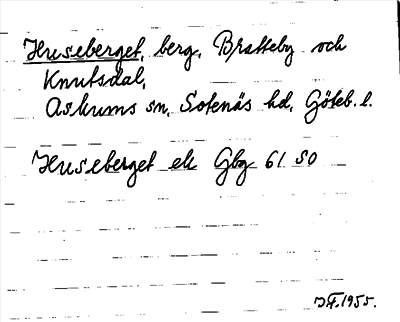 Huseberget, berg, Bratteby och
Knutsdal,
Askums sn, Sotenäs hd, Göteb. l.
Huseberget ek Gbg 61 SO
1955.